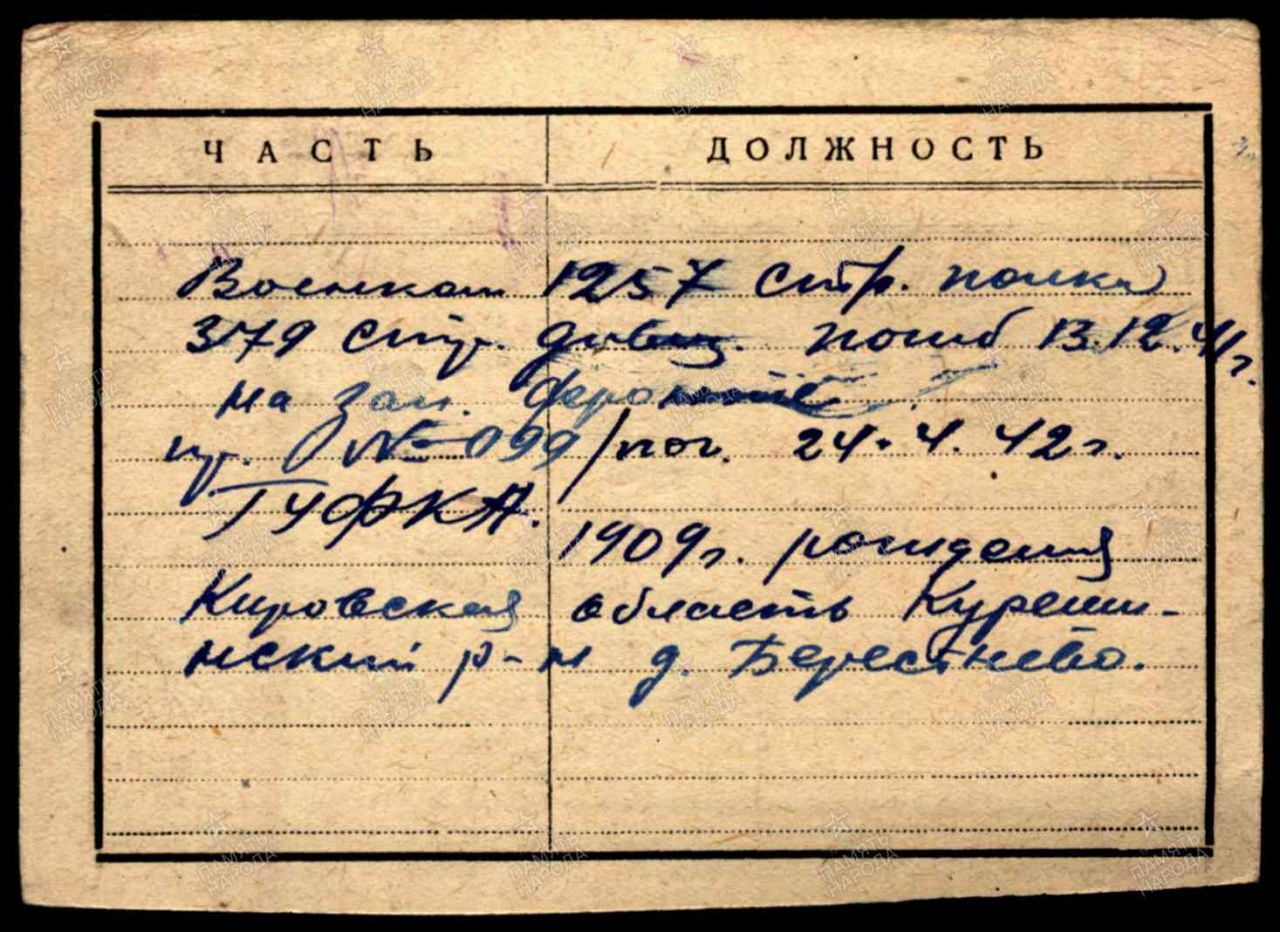 ЧАСТЬ ДОЛЖНОСТЬ
Военком 1257 стр. полка
379 стр. дивиз. погиб 13.12.41г.
на зап. фронте
пр. № 099/пог. 24.4.42г.
ГУФКА.
1909г. рождения
Кировская область Куреши-
нский р-н д. Берестнево.
ПАМЯТЬ НАРОДА